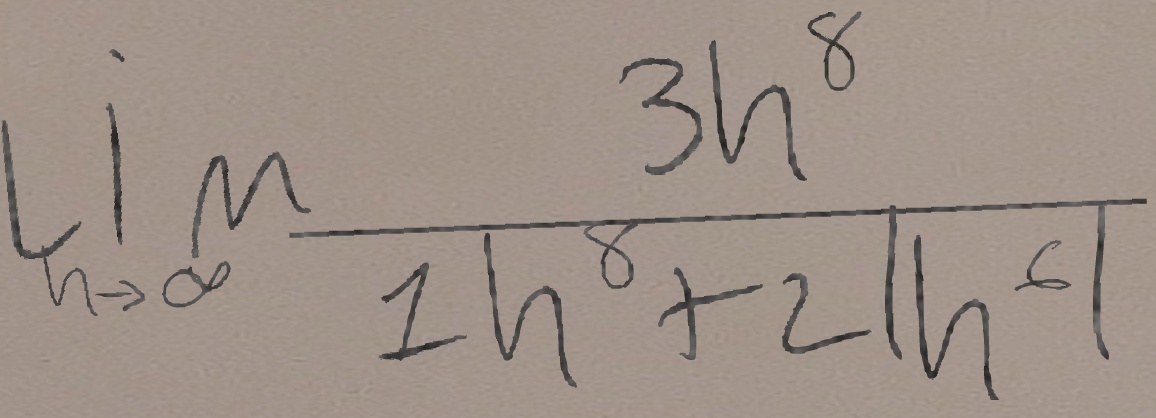 Lim h→∞ 3h^8 / 1h^8 + 2|h^6|